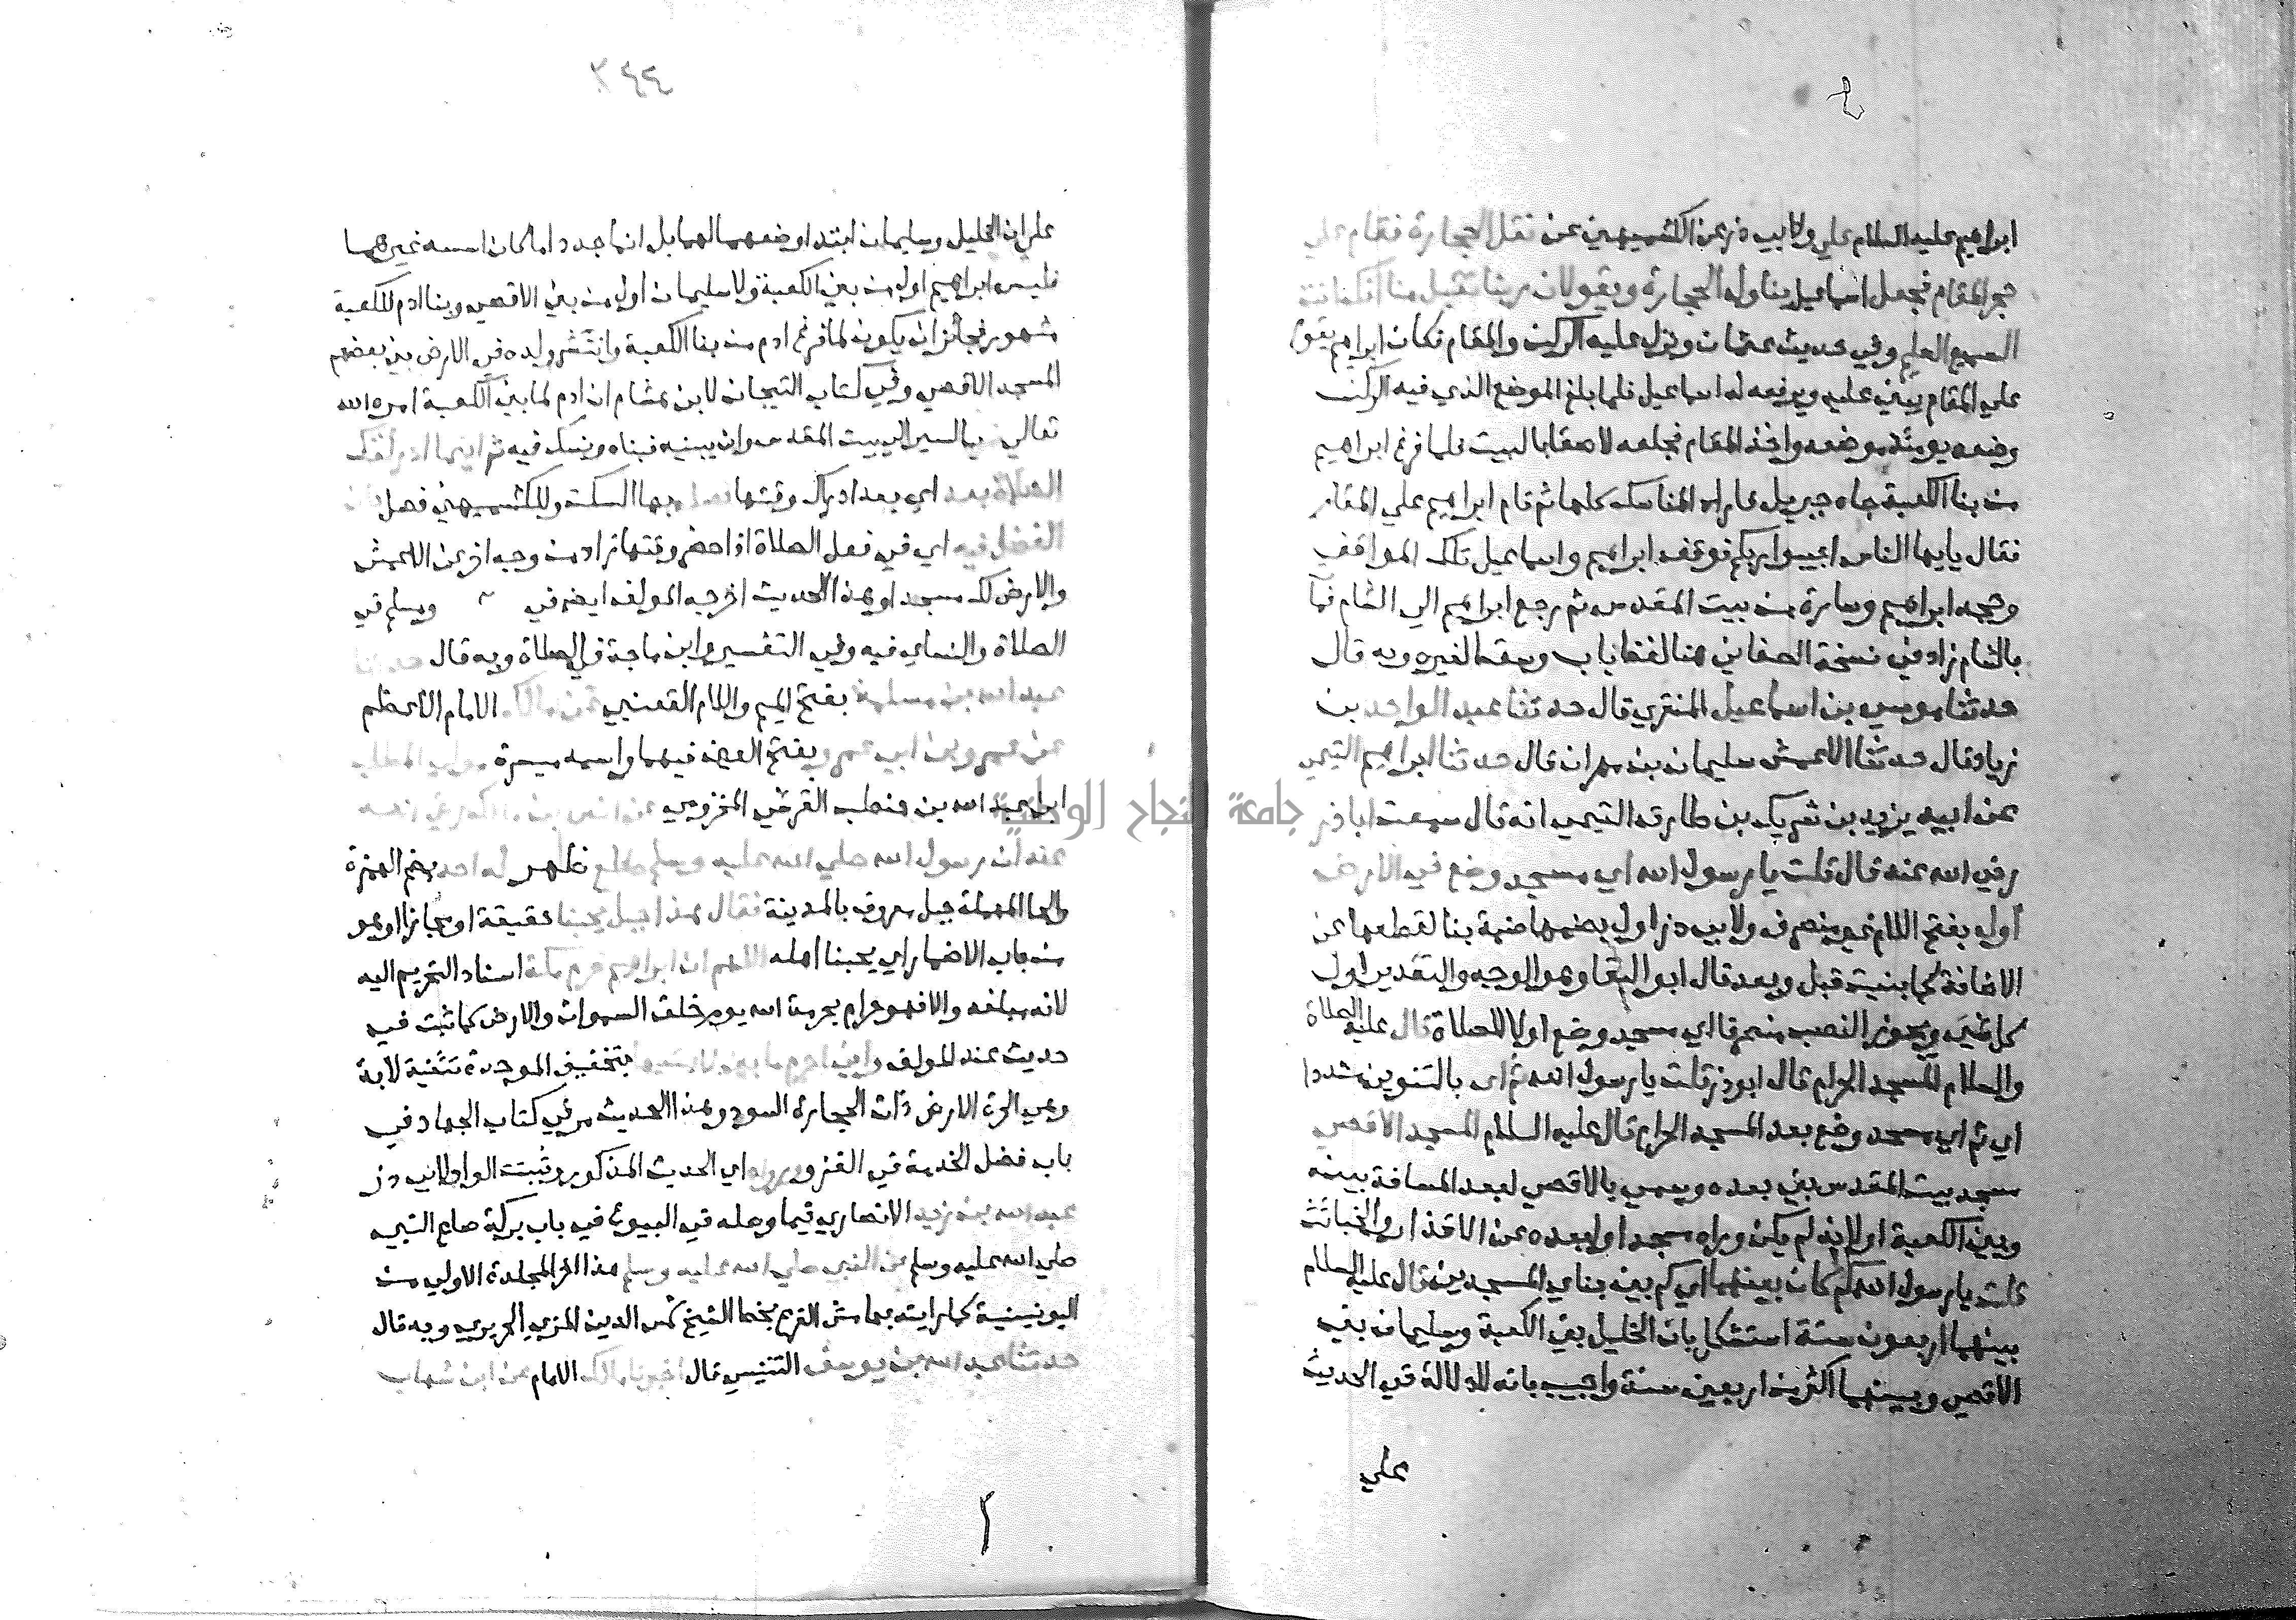 ابراهيم عليه السلام علي ولابي ذر عن الكشميهني عن نقل الحجارة فقام علي
حجر المقام فجعل اسماعيل يناوله الحجارة ويقولان ربنا تقبل منا انك انت
السميع العليم وفي حديث عثمان ونزل عليه الركن والمقام فكان ابراهيم يقوم
علي المقام يبني عليه ويرفعه له اسماعيل فلما بلغ الموضع الذي فيه الركن
وضعه يومئذ موضعه واخذ المقام فجعله لاصقا بالبيت فلما فرغ ابراهيم
من بنا الكعبة جاه جبريل فاراه المناسك كلها ثم قام ابراهيم علي المقام
فقال يايها الناس اجيبوا ربكم فوقف ابراهيم واسماعيل تلك المواقف
وحجه ابراهيم وسارة من بيت المقدس ثم رجع ابراهيم الي الشام فمات
بالشام زاد في نسخة الصغاني هنا لفظ باب وسقط لغيره وبه قال
حدثنا موسي بن اسماعيل المنقري قال حدثنا عبد الواحد بن
زياد قال حدثنا الاعمش سليمان بن مهران قال حدثنا ابراهيم التيمي
عن ابيه يزيد بن شريك بن طارق التيمي انه قال سمعت ابا ذر
رضي الله عنه قال قلت يا رسول الله اي مسجد وضع في الارض
اول بفتح اللام غير منصرف ولابي ذر اول بضمها ضمة بنا لقطعها عن
الاضافة كما بنيت قبل وبعد قال ابو البقا وهو الوجه والتقدير اول
كل شي ويجوز النصب منصرفا اي مسجد وضع اولا للصلاة قال عليه الصلاة
والسلام المسجد الحرام قال ابو ذر قلت يا رسول الله ثم اي بالتنوين مشددا
اي ثم اي مسجد وضع بعد المسجد الحرام قال عليه السلام المسجد الاقصي
مسجد بيت المقدس بني بعده وسمي بالاقصي لبعد المسافة بينه
وبين الكعبة او لانه لم يكن وراه مسجد او لبعده عن الاقذار والخبائث
قلت يا رسول الله كم كان بينهما اي كم بين بناي المسجدين قال عليه السلام
بينهما اربعون سنة استشكل بان الخليل بني الكعبة وسليمان بني
الاقصي وبينهما اكثر من اربعين سنة واجيب بانه لا دلالة في الحديث
علي
٣٤٤
علي ان الخليل وسليمان ابتدا وضعهما لهما بل انما جددا ما كان اسسه غيرهما
فليس ابراهيم اول من بني الكعبة ولا سليمان اول من بني الاقصي وبنا ادم للكعبة
مشهور فجائز ان يكون لما فرغ ادم من بنا الكعبة وانتشر ولده في الارض بني بعضهم
المسجد الاقصي وفي كتاب التيجان لابن هشام ان ادم لما بني الكعبة امره الله
تعالي بالسير الي بيت المقدس وان يبنيه فبناه ونسك فيه ثم اينما ادركتك
الصلاة بعد اي بعد ادراك وقتها فصله بها السكت وللكشميهني فصل
الفضل فيه اي في فعل الصلاة اذا حضر وقتها زاد من وجه اخر عن الاعمش
والارض لك مسجد وهذا الحديث اخرجه المولف ايضا في ومسلم في
الصلاة والنساي فيه وفي التفسير وابن ماجة في الصلاة وبه قال حدثنا
عبد الله بن مسلمة بفتح الميم واللام القعنبي عن مالك الامام الاعظم
عن عمرو بن ابي عمرو بفتح العين فيهما واسمه ميسرة مولي المطلب
ابن عبد الله بن حنطب القرشي المخزومي عن انس بن مالك رضي الله
عنه ان رسول الله صلي الله عليه وسلم طلع ظهر له احد بضم الهمزة
والحا المهملة جبل معروف بالمدينة فقال هذا جبل يحبنا حقيقة او مجازا او هو
من باب الاضمار اي يحبنا اهله اللهم ان ابراهيم حرم مكة اسناد التحريم اليه
لانه مبلغه والا فهو حرام بحرمة الله يوم خلق السموات والارض كما ثبت في
حديث عند المولف واني احرم ما بين لابتيها بتخفيف الموحدة تثنية لابة
وهي الحرة الارض ذات الحجارة السود وهذا الحديث مر في كتاب الجهاد في
باب فضل الخدمة في الغزو ورواه اي الحديث المذكور وثبت الواو لابي ذر
عبد الله بن زيد الانصاري فيما وصله في البيوع في باب بركة صاع النبي
صلي الله عليه وسلم عن النبي صلي الله عليه وسلم هذا اخر المجلدة الاولي من
اليونينية كما رايته بهامش الفرع بخط الشيخ شمس الدين المزي الحريري وبه قال
حدثنا عبد الله بن يوسف التنيسي قال اخبرنا مالك الامام عن ابن شهاب
جامعة النجاح الوطنية